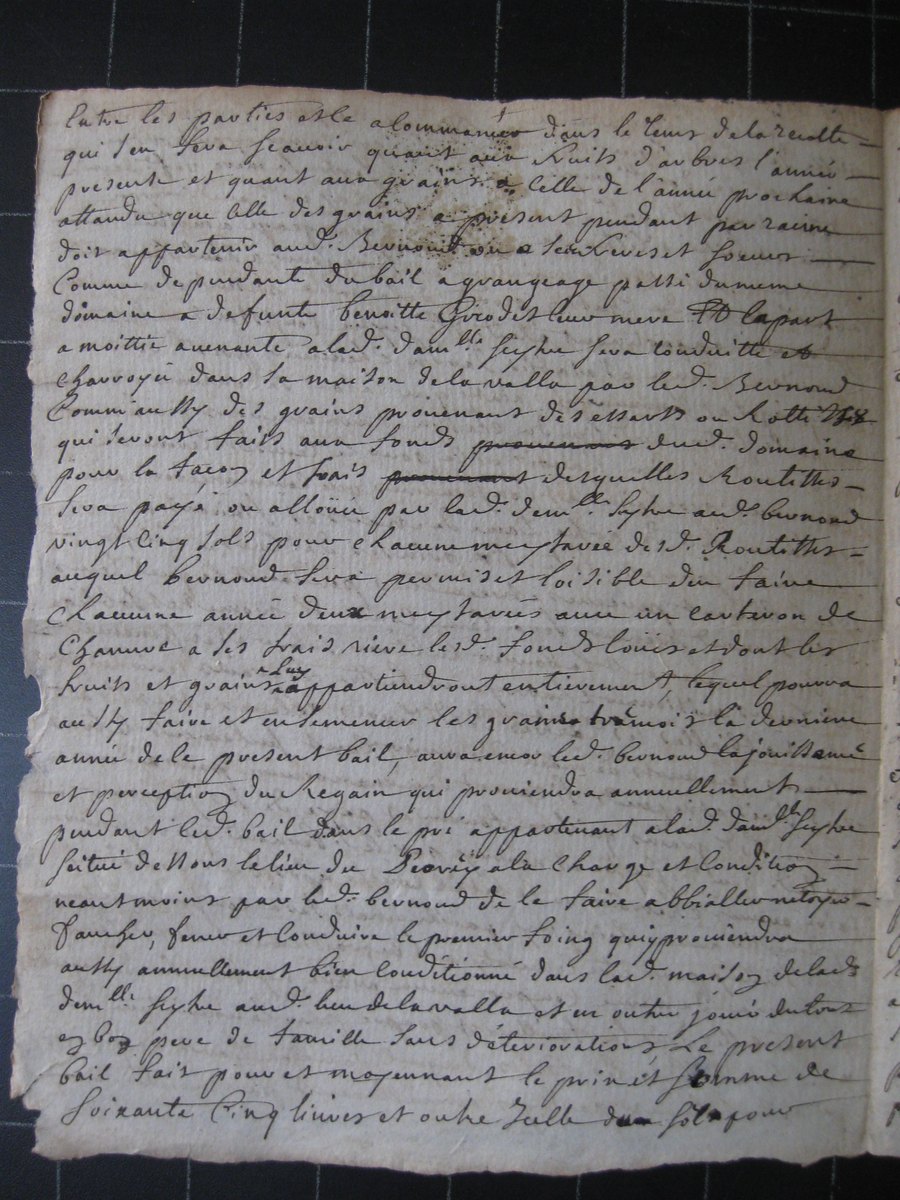 Entre les parties et le a Commancer dans le tems de la recolte
qui sen fera scauoir quant aux fruits d'arbres l'année
presente et quant aux grains a Celle de l'année prochaine
attandu que Celle des grains a present pendant par racine
doit appartenir aud. Bernond ou a ses freres et soeurs
Comme dependante du bail a grangeage passé du meme
domaine a defunte benoitte Girodet leur mere Et la part
a moittié auenante a lad. damlle Seytre sera Conduitte et
Charroyée dans sa maison de la valla par led. Bernond
Comm'aussy des grains prouenant des essarts ou
qui seront faits aux fonds prouenant dud. domaine
pour la facon et frais prouenant desquelles Routtes
sera payé ou alloüé par lad. demlle Seytre aud. bernond
vingt Cinq sols pour chacune meytarée desd. Routtes
auquel bernond sera permis et loisible d'en faire
Chacune année deux meytarées auec un carteron de
Chanure a ses frais riere lesd. fonds loüés et dont les
fruits et grains Luy appartiendront entierement, lequel pourra
aussy faire et ensemencer les grains tremois la derniere
année de le present bail, aura encor led. bernond la jouissance
et perception du Regain qui prouiendra annuellement
pendant led. bail dans le pré appartenant a lad. damlle Seytre
scitué dessous le lieu du a la Charge et Condition
neantmoins par led. bernond de le faire abbialler netoyer
faucher, fener et Conduire le premier foing quy prouiendra
aussy annuellement bien Conditionné dans lad. maison de lad.
demlle Seytre aud. lieu de la valla et en outre jouir du tout
en bon pere de famille sans déteriorations Le present
bail fait pour et moyennant le prix et Somme de
Soixante Cinq liures et outre Icelle sols pour